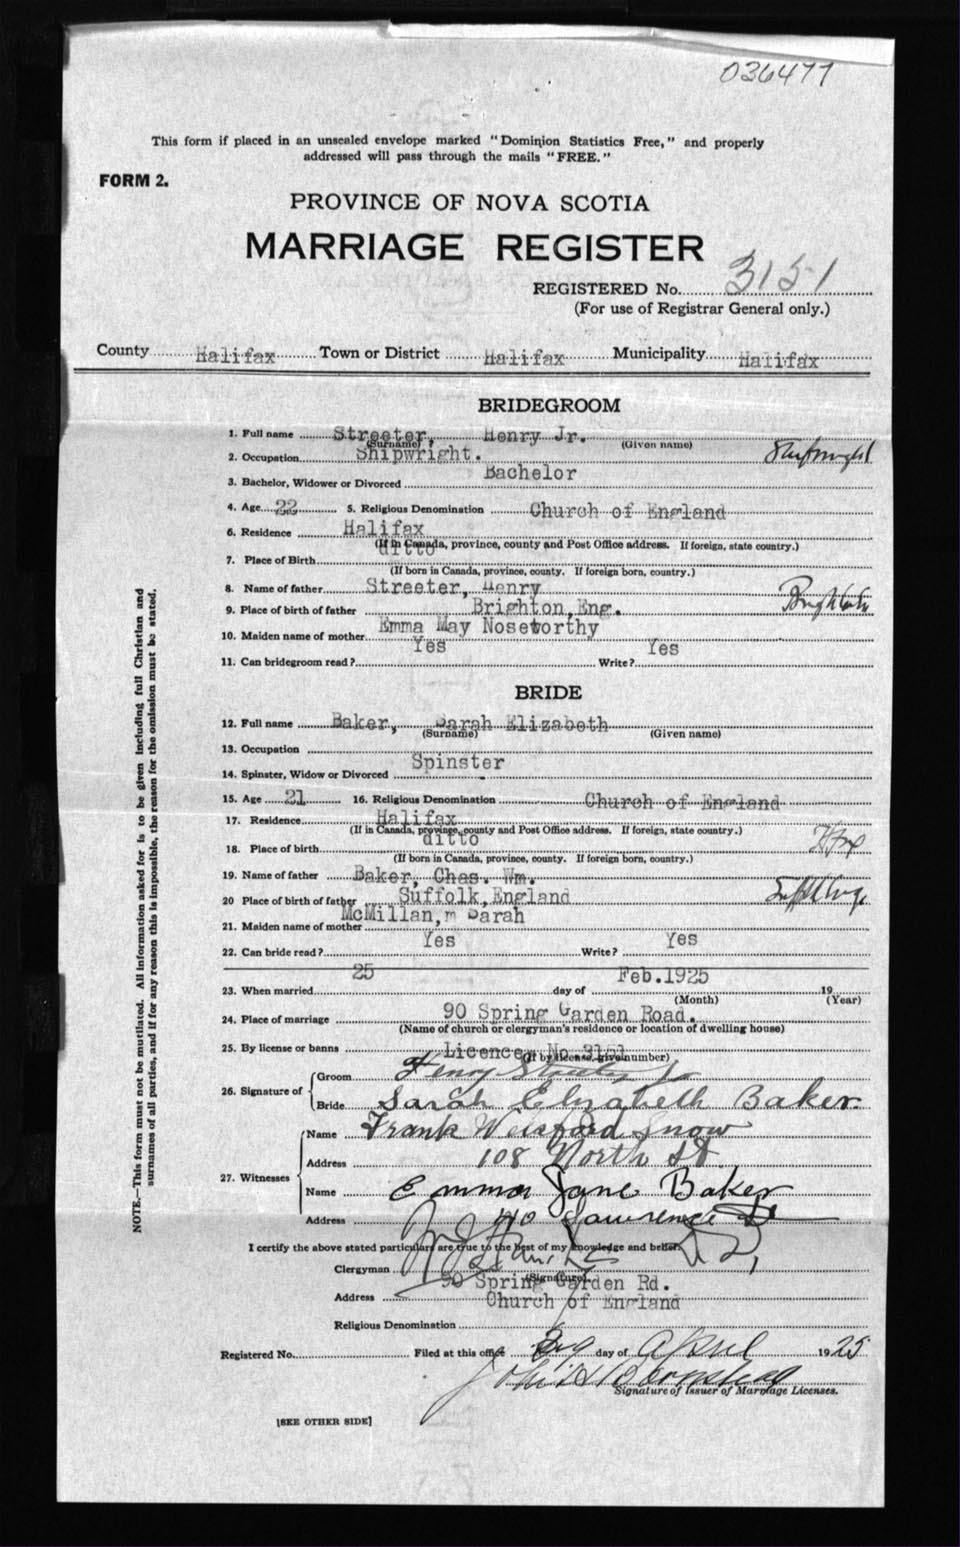 036477
This form if placed in an unsealed envelope marked "Dominion Statistics Free," and properly
addressed will pass through the mails "FREE."
FORM 2.
PROVINCE OF NOVA SCOTIA
MARRIAGE REGISTER
REGISTERED No. 3151
(For use of Registrar General only.)
County Halifax Town or District Halifax Municipality Halifax
BRIDEGROOM
1. Full name Streeter, Henry Jr.
(Surname) (Given name)
2. Occupation Shipwright. Shipwright
3. Bachelor, Widower or Divorced Bachelor
4. Age 22 5. Religious Denomination Church of England
6. Residence Halifax
(If in Canada, province, county and Post Office address. If foreign, state country.)
7. Place of Birth ditto
(If born in Canada, province, county. If foreign born, country.)
8. Name of father Streeter, Henry
9. Place of birth of father Brighton, Eng.
10. Maiden name of mother Emma May Noseworthy
11. Can bridegroom read? Yes Write? Yes
BRIDE
12. Full name Baker, Sarah Elizabeth
(Surname) (Given name)
13. Occupation
14. Spinster, Widow or Divorced Spinster
15. Age 21 16. Religious Denomination Church of England
17. Residence Halifax
(If in Canada, province, county and Post Office address. If foreign, state country.)
18. Place of birth ditto Hfx
(If born in Canada, province, county. If foreign born, country.)
19. Name of father Baker, Chas. Wm.
20 Place of birth of father Suffolk, England Suffolk Eng.
21. Maiden name of mother McMillan, Sarah
22. Can bride read? Yes Write? Yes
23. When married 25 day of Feb. 1925 19
(Month) (Year)
24. Place of marriage 90 Spring Garden Road.
(Name of church or clergyman's residence or location of dwelling house)
25. By license or banns Licence, No 3151
(If by license, give number)
26. Signature of Groom Henry Streeter Jr
Bride Sarah Elizabeth Baker.
27. Witnesses Name Frank Snow
Address 108 North St.
Name Emma Jane Baker
Address Lawrence St
I certify the above stated particulars are true to the best of my knowledge and belief.
Clergyman
(Signature)
Address 90 Spring Garden Rd.
Church of England
Religious Denomination
Registered No. Filed at this office day of April 1925
Signature of Issuer of Marriage Licenses.
[SEE OTHER SIDE]
NOTE.—This form must not be mutilated. All information asked for is to be given including full Christian and
surnames of all parties, and if for any reason this is impossible, the reason for the omission must be stated.